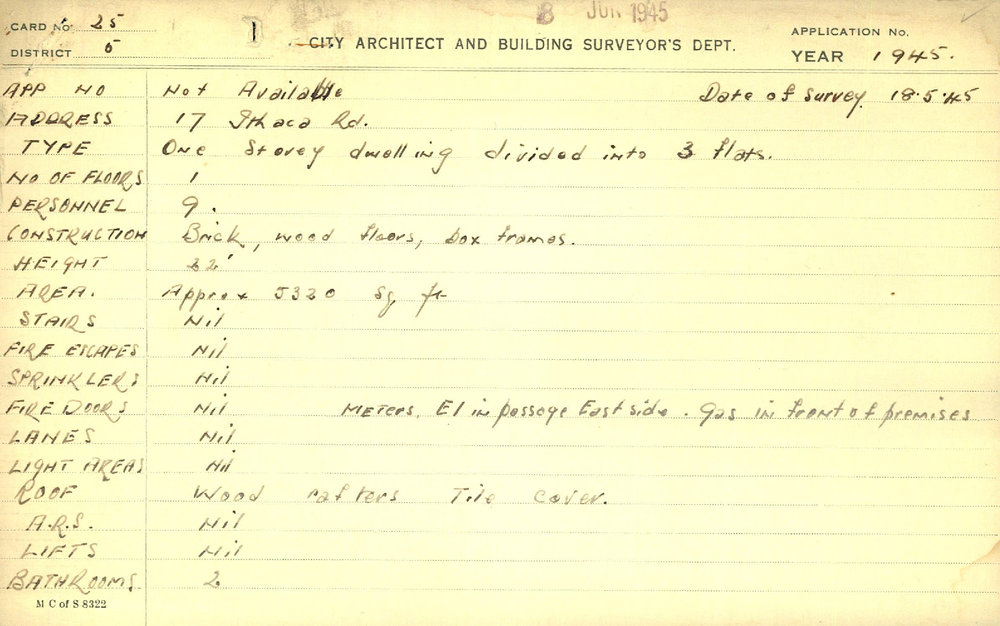 CARD No. 25
DISTRICT 5
D
8 JUN 1945
CITY ARCHITECT AND BUILDING SURVEYOR'S DEPT.
APPLICATION No.
YEAR 1945.
APP NO Not Available Date of Survey 18.5.45
ADDRESS 17 Ithaca Rd.
TYPE One Storey dwelling divided into 3 flats.
NO OF FLOORS 1
PERSONNEL 9.
CONSTRUCTION Brick, wood floors, box frames.
HEIGHT 22'
AREA. Approx 5320 Sq ft
STAIRS Nil
FIRE ESCAPES Nil
SPRINKLERS Nil
FIRE DOORS Nil METERS, El in passage East side. Gas in front of premises
LANES Nil
LIGHT AREAS Nil
ROOF Wood rafters Tile cover.
A.R.S. Nil
LIFTS Nil
BATHROOMS 2
M C of S 8322